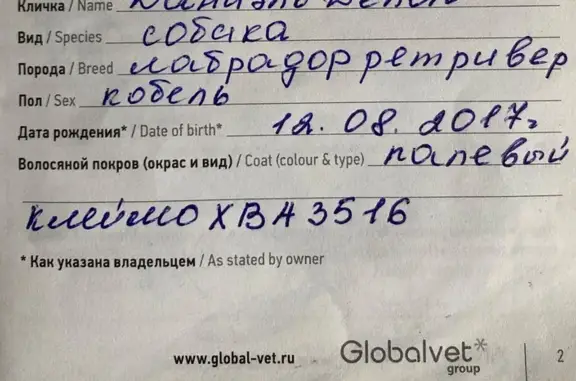 Кличка / Name
Вид / Species собака
Порода / Breed лабрадор ретривер
Пол / Sex кобель
Дата рождения* / Date of birth* 12.08.2017г
Волосяной покров (окрас и вид) / Coat (colour & type) палевый
клеймо XBH3516
* Как указана владельцем / As stated by owner
www.global-vet.ru Globalvet* group 2